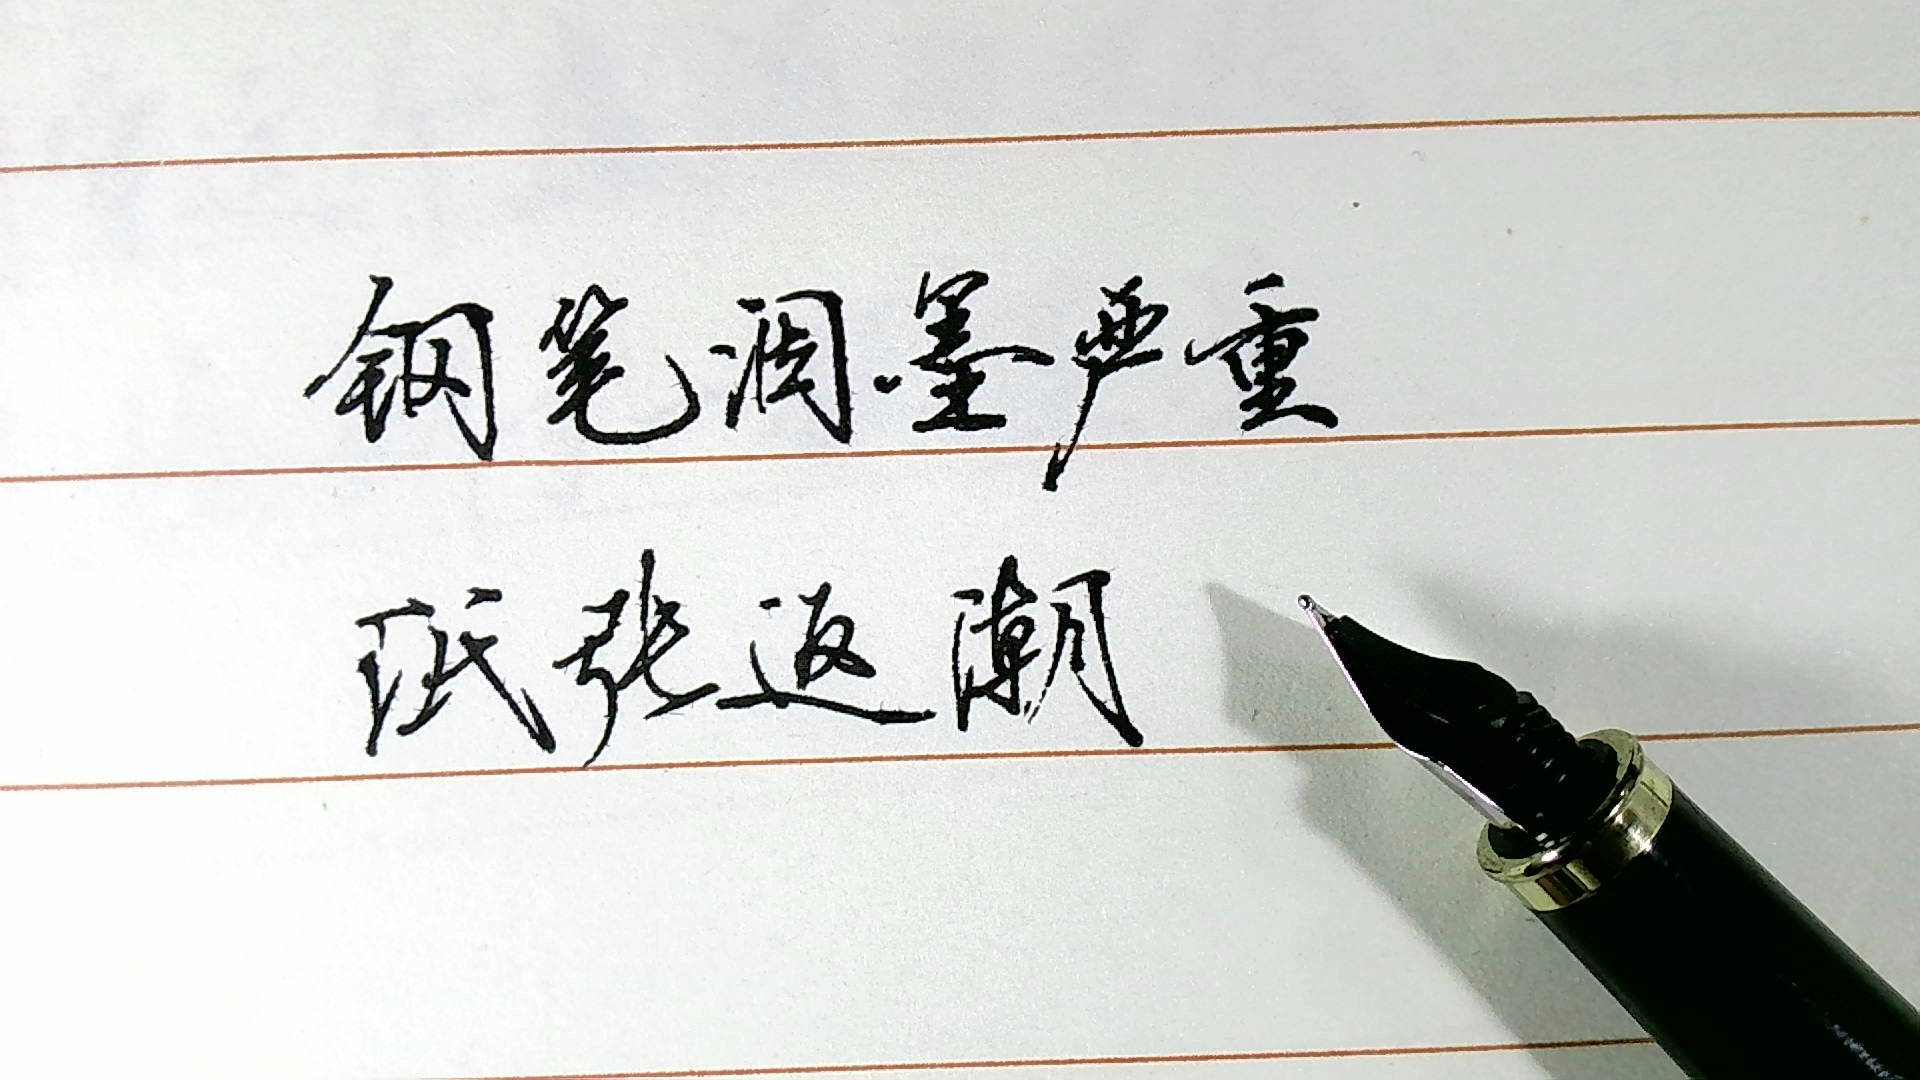 钢笔润墨严重
纸张返潮